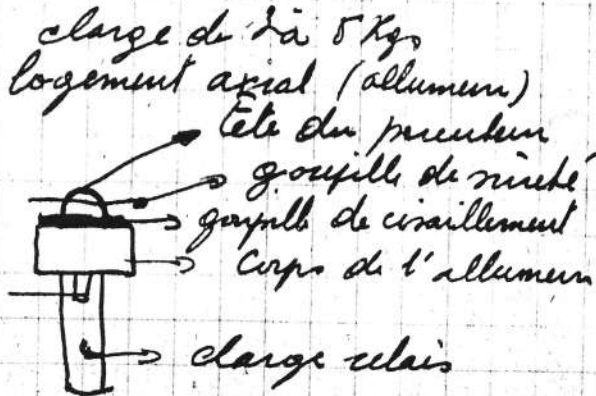 charge de 2 à 5 Kgs
logement axial (allumeur)
Tête du percuteur
goupille de sûreté
goupille de cisaillement
Corps de l'allumeur
charge relais